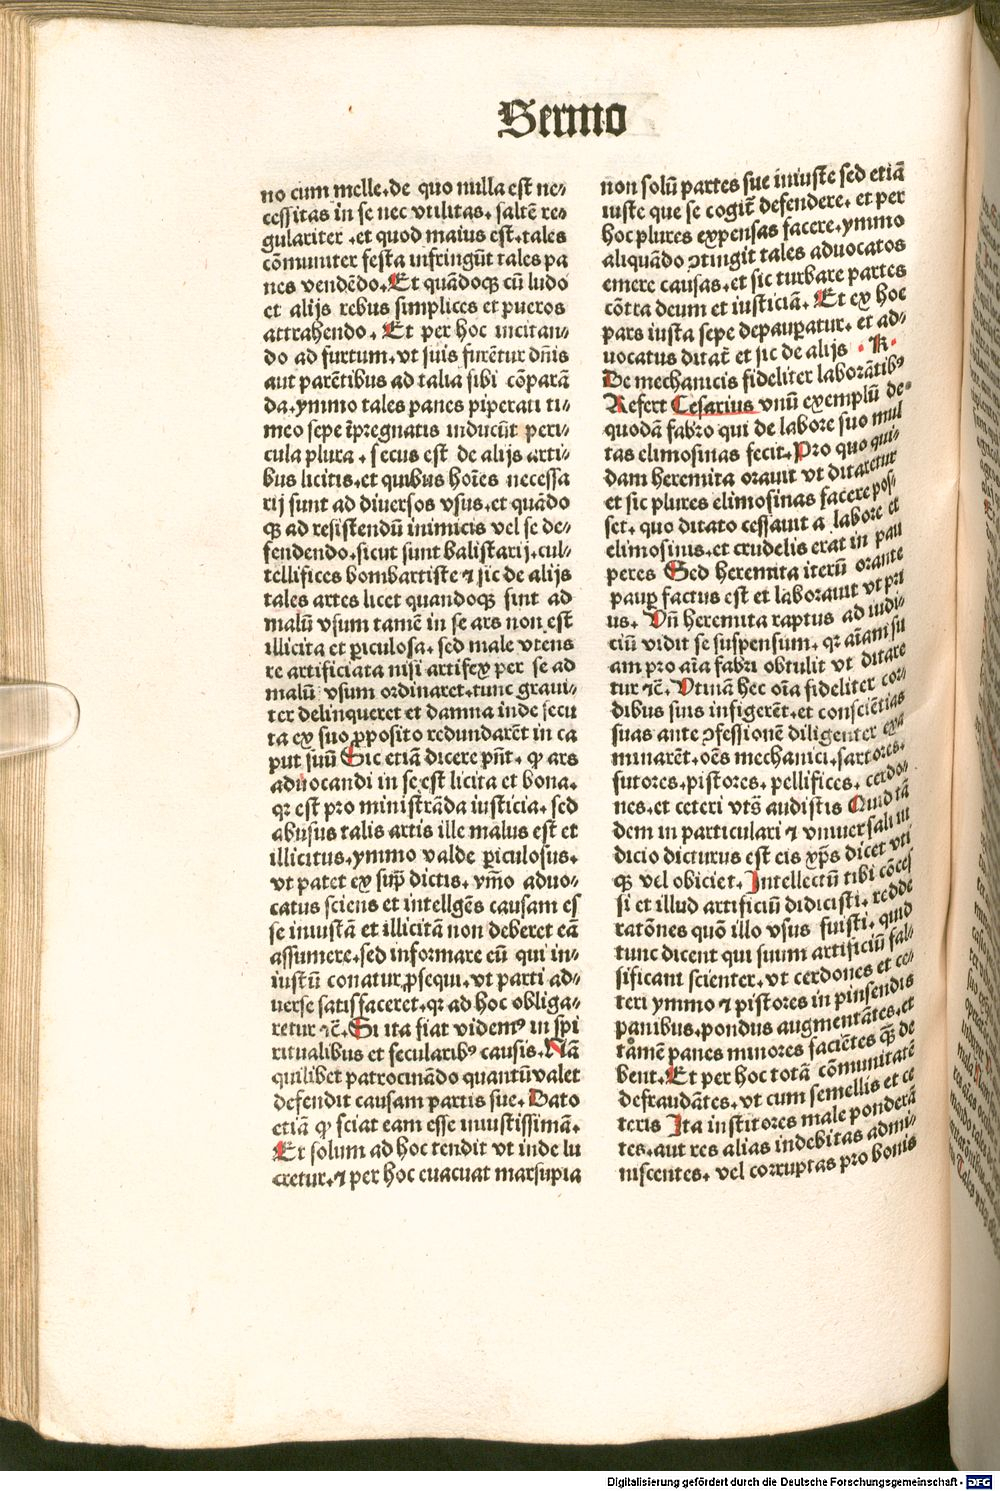 Sermo
no cum melle.de quo nulla est ne⸗
cessitas in se nec vtilitas. saltē re⸗
gulariter .et quod maius est.tales
cōmuniter festa infringūt tales pa
nes vendēdo.Et quādoqꝫ cū ludo
et alijs rebus simplices et pueros
attrahendo. Et per hoc incitan⸗
do ad furtum.vt suis furētur dn̄is
aut parētibus ad talia sibi cōparā
da.ymmo tales panes piperati ti⸗
meo sepe īpregnatis inducūt peri⸗
cula plura. secus est de alijs arti⸗
bus licitis.et quibus hoīes necessa
rij sunt ad diuersos vsus.et quādo
qꝫ ad resistendū inimicis vel se de⸗
fendendo.sicut sunt balistarij.cul⸗
tellifices bombartiste ⁊ sic de alijs
tales artes licet quandoqꝫ sint ad
malū vsum tamē in se ars non est
illicita et ꝑiculosa. sed male vtens
re artificiata nisi artifex per se ad
malū vsum ordinaret.tunc graui⸗
ter delinqueret et damna inde secu
ta ex suo ꝓposito redundarēt in ca
put suū Sic etiā dicere pn̄t. ꝙ ars
aduocandi in se est licita et bona.
qꝛ est pro ministrāda iusticia. sed
abusus talis artis ille malus est et
illicitus.ymmo valde ꝑiculosus.
vt patet ex sup̄ dictis. ym̄o aduo⸗
catus sciens et intellgēs causam es
se iniustā et illicitā non deberet eā
assumere.sed informare eū qui in⸗
iustū conatur ꝓsequi.vt parti ad⸗
uerse satisfaceret.qꝛ ad hoc obliga⸗
retur ⁊c̄.Si ita fiat videmꝰ in spi
ritualibus et secularibꝰ causis.Nā
quilibet patrocinādo quantūvalet
defendit causam partis sue. Dato
etiā ꝙ sciat eam esse iniustissimā.
Et solum ad hoc tendit vt inde lu
cretur.⁊ per hoc euacuat marsupia
non solū partes sue iniuste sed etiā
iuste que se cogit̄ defendere. et per
hoc plures expensas facere.ymmo
aliquādo ꝯtingit tales aduocatos
emere causas.et sic turbare partes
cōtra deum et iusticiā. Et ex hoc
pars iusta sepe depauꝑatur. et ad⸗
uocatus ditat̄ et sic de alijs .K.
De mechanicis fideliter laborātibꝰ
Refert Cesarius vnū exemplū de⸗
quodā fabro qui de labore suo mul
tas elimosinas fecit.Pro quo qui⸗
dam heremita orauit vt ditaretur
et sic plures elimosinas facere pos⸗
set. quo ditato cessauit a labore et
elimosinis.et crudelis erat in pau
peres Sed heremita iterū orante
paupꝑ factus est et laborauit vt pri
us. Vn̄ heremita raptus ad iudi⸗
ciū vidit se suspensum. qꝛ aīam su
am pro aīa fabri obtulit vt ditare
tur ⁊c̄. Vtinā hec oīa fideliter cor⸗
dibus suis infigerēt.et consciētias
suas ante ꝯfessionē diligenter exa
minarēt.oēs mechanici.sartores.
sutores.pistores. pellifices. cerdo⸗
nes.et ceteri vts̄ audistis Quid tā
dem in particulari ⁊ vniuersali iu
dicio dicturus est eis xp̄s dicet vti
qꝫ vel obiciet. Intellectū tibi cōces
si et illud artificiū didicisti. redde
ratōnes quō illo vsus fuisti. quid
tunc dicent qui suum artificiū fal⸗
sificant scienter.vt cerdones et ce⸗
teri ymmo ⁊ pistores in pinsendis
panibus.pondus augmentātes.et
tamē panes minores faciētes qꝫ de
bent.Et per hoc totā cōmunitatē
defraudātes.vt cum semellis et ce
teris Ita institores male ponderā
tes.aut res alias indebitas admi⸗
niscentes. vel corruptas pro bonis
Digitalisierung gefördert durch die Deutsche Forschungsgemeinschaft - DFG